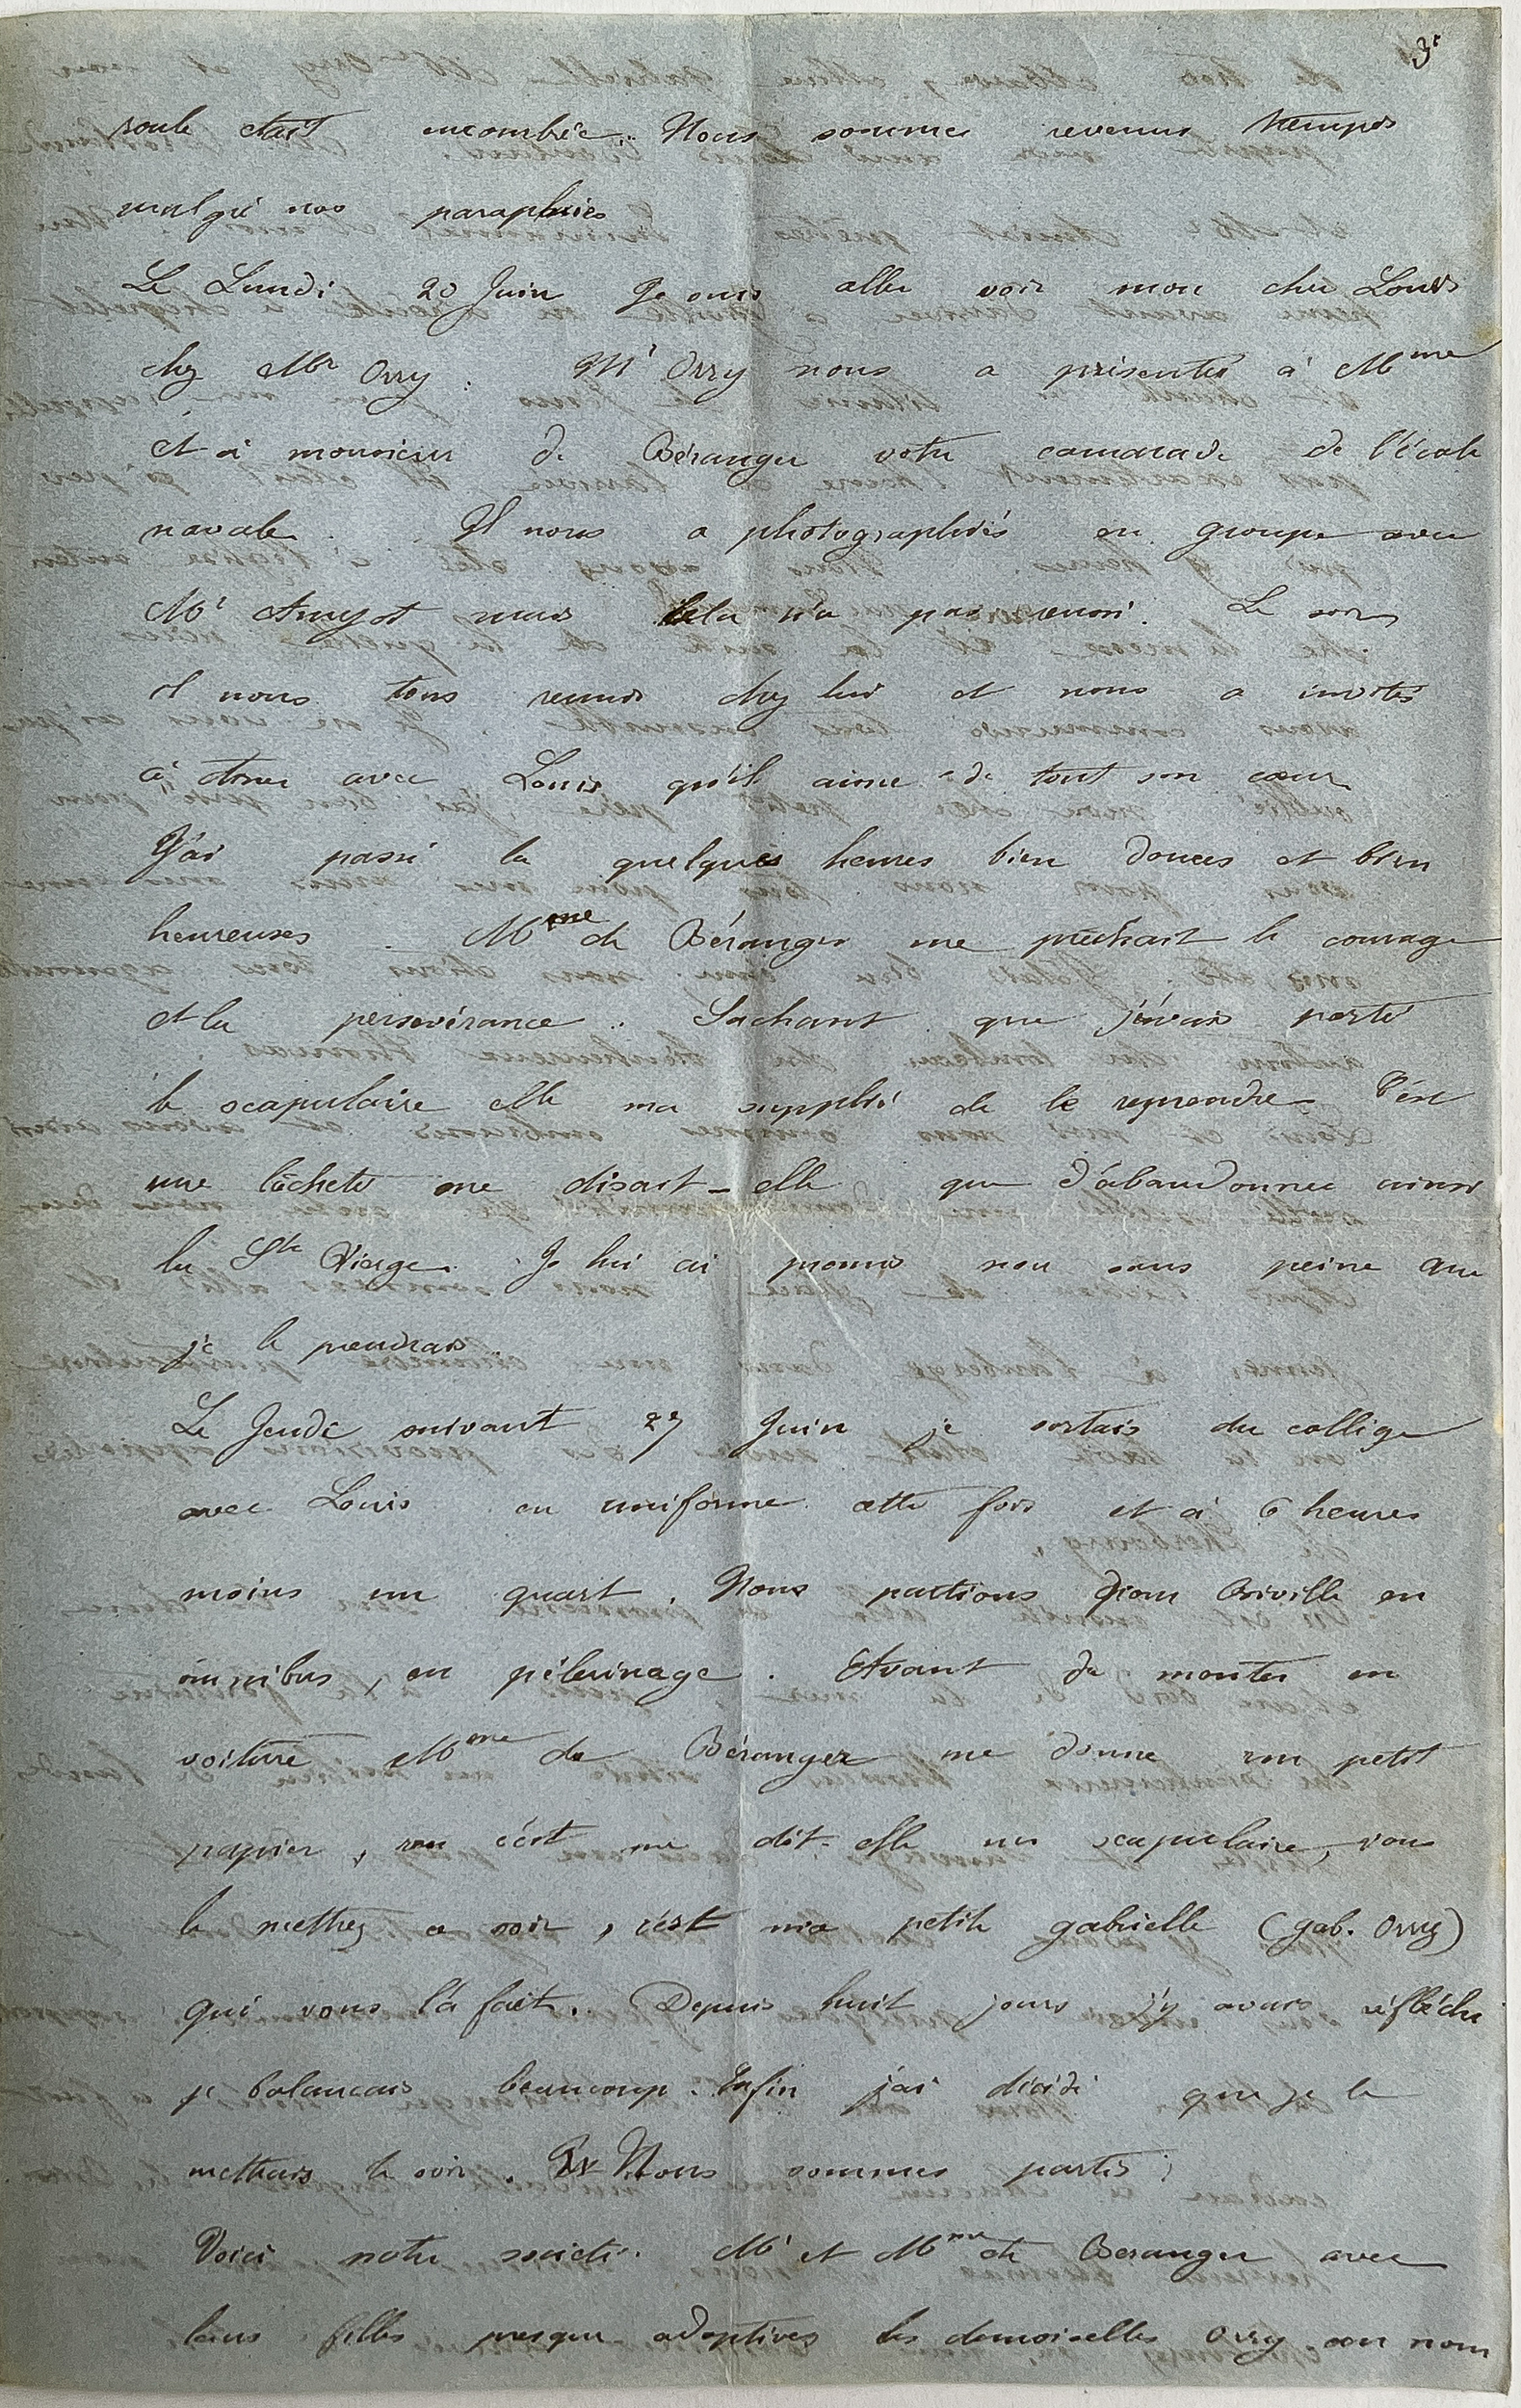 3e
route était encombrée. Nous sommes revenus trempés
malgré nos parapluies
Le Lundi 20 Juin Je suis aller voir mon cher Louis
chez Mr Orry. Mr Orry nous a présentés à Mme
et à monsieur de Béranger votre camarade de l'école
navale. Il nous a photographiés en groupe avec
Mr Amyot mais cela n'a pas reussi. Le soir
il nous tous reunis chez lui et nous a invités
à diner avec Louis qu'il aime de tout son cœur
J'ai passé la quelques heures bien douces et bien
heureuses. Mme de Béranger me prêchait le courage
et la persévérance. Sachant que j'avais porté
le scapulaire elle ma supplié de le reprendre. C'est
une lâcheté me disait-elle que d'abandonner ainsi
la Ste Vierge. Je lui ai promis non sans peine que
je le prendrais.
Le Jeudi suivant 27 Juin je sortais du collège
avec Louis en uniforme cette fois et à 6 heures
moins un quart. Nous partions pour Biville en
omnibus, en pélerinage. Avant de monter en
voiture Mme de Béranger me donne un petit
papier, c'est me dit-elle un scapulaire, vous
le mettrez ce soir, c'est ma petite gabrielle (gab. Orry)
qui vous l'a fait. Depuis huit jours j'y avais réfléchi
je balancais beaucoup. Enfin j'ai décidé que je le
mettrais le soir. Nous sommes partis;
Voici notre société. Mr et Mme de Béranger avec
leurs filles presque adoptives les demoiselles Orry au nom